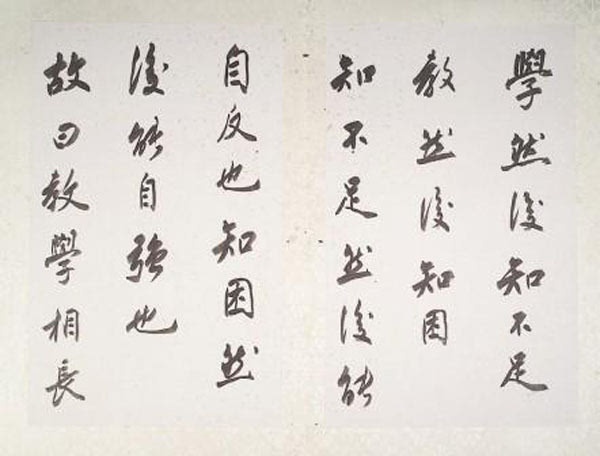 學然後知不足
教然後知困
知不足然後能
自反也知困然
後能自強也
故曰教學相長